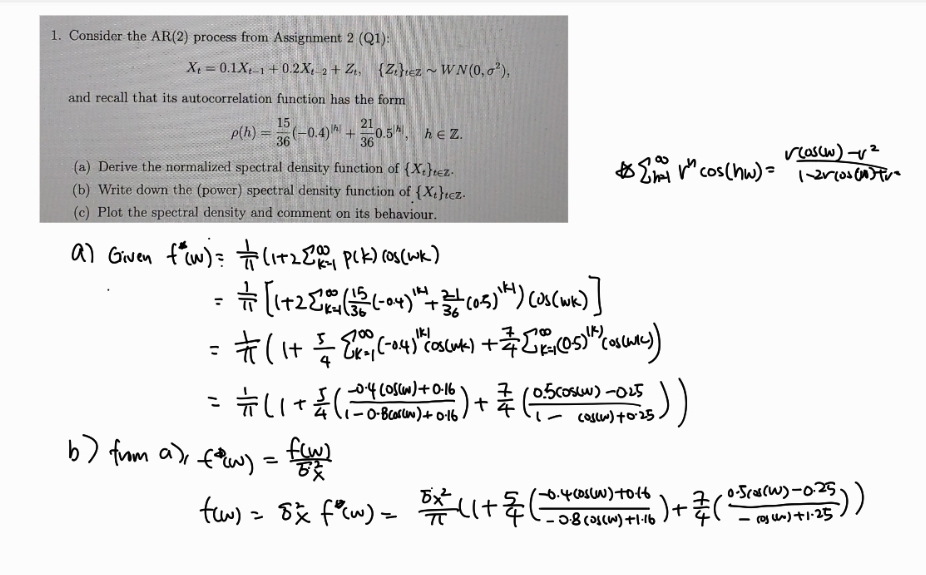 1. Consider the AR(2) process from Assignment 2 (Q1):
X_t = 0.1X_{t-1} + 0.2X_{t-2} + Z_t, {Z_t}_{t∈Z} ~ WN(0, σ²),
and recall that its autocorrelation function has the form
ρ(h) = 15/36 (-0.4)^{|h|} + 21/36 0.5^{|h|}, h ∈ Z.
(a) Derive the normalized spectral density function of {X_t}_{t∈Z}.
(b) Write down the (power) spectral density function of {X_t}_{t∈Z}.
(c) Plot the spectral density and comment on its behaviour.
Σ_{h=1}^∞ r^h cos(hw) = (r cos(w) - r²)/(1 - 2r cos(w) + r²)
a) Given f*(w) = 1/π (1 + 2Σ_{k=1}^∞ p(k) cos(wk)
= 1/π [1 + 2Σ_{k=1}^∞ (15/36 (-0.4)^{|k|} + 21/36 (0.5)^{|k|}) cos(wk)]
= 1/π (1 + 5/4 Σ_{k=1}^∞ (-0.4)^{|k|} cos(wk) + 7/4 Σ_{k=1}^∞ (0.5)^{|k|} cos(wk))
= 1/π (1 + 5/4 ((-0.4 cos(w) + 0.16)/(1 - 0.8 cos(w) + 0.16)) + 7/4 ((0.5 cos(w) - 0.25)/(1 - cos(w) + 0.25)))
b) from a), f*(w) = f(w)/σ_X²
f(w) = σ_X² f*(w) = σ_X²/π (1 + 5/4 ((-0.4 cos(w) + 0.16)/(-0.8 cos(w) + 1.16)) + 7/4 ((0.5 cos(w) - 0.25)/(- cos(w) + 1.25)))